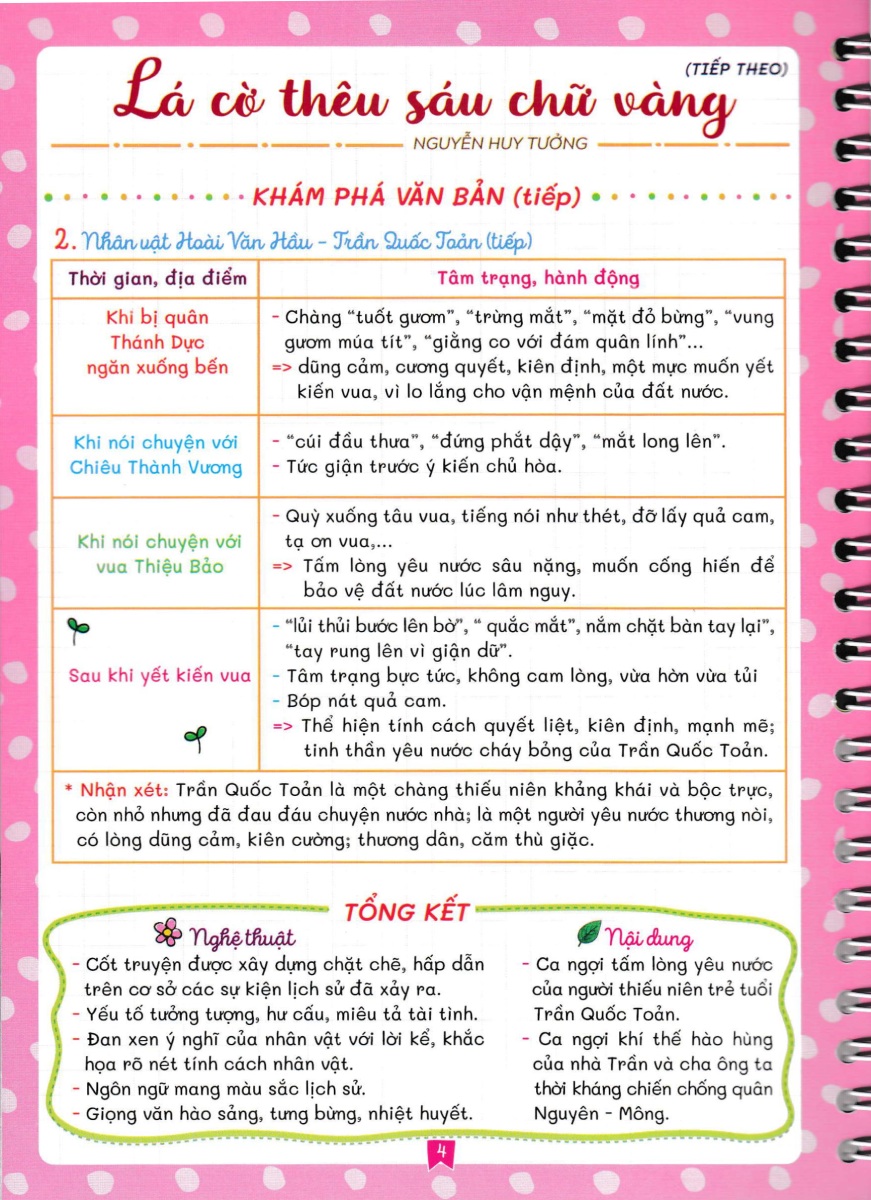 (TIẾP THEO)
Lá cờ thêu sáu chữ vàng
NGUYỄN HUY TƯỞNG
KHÁM PHÁ VĂN BẢN (tiếp)
2. Nhân vật Hoài Văn Hầu – Trần Quốc Toản (tiếp)
Thời gian, địa điểm
Tâm trạng, hành động
Khi bị quân
Thánh Dực
ngăn xuống bến
- Chàng “tuốt gươm”, “trừng mắt”, “mặt đỏ bừng”, “vung
gươm múa tít”, “giằng co với đám quân lính”...
=> dũng cảm, cương quyết, kiên định, một mực muốn yết
kiến vua, vì lo lắng cho vận mệnh của đất nước.
Khi nói chuyện với
Chiêu Thành Vương
- “cúi đầu thưa”, “đứng phắt dậy”, “mắt long lên”.
- Tức giận trước ý kiến chủ hòa.
Khi nói chuyện với
vua Thiệu Bảo
- Quỳ xuống tâu vua, tiếng nói như thét, đỡ lấy quả cam,
tạ ơn vua,...
=> Tấm lòng yêu nước sâu nặng, muốn cống hiến để
bảo vệ đất nước lúc lâm nguy.
Sau khi yết kiến vua
- “lủi thủi bước lên bờ”, “ quắc mắt”, nắm chặt bàn tay lại”,
“tay rung lên vì giận dữ”.
- Tâm trạng bực tức, không cam lòng, vừa hờn vừa tủi
- Bóp nát quả cam.
=> Thể hiện tính cách quyết liệt, kiên định, mạnh mẽ;
tinh thần yêu nước cháy bỏng của Trần Quốc Toản.
* Nhận xét: Trần Quốc Toản là một chàng thiếu niên khảng khái và bộc trực,
còn nhỏ nhưng đã đau đáu chuyện nước nhà; là một người yêu nước thương nòi,
có lòng dũng cảm, kiên cường; thương dân, căm thù giặc.
TỔNG KẾT
Nghệ thuật
- Cốt truyện được xây dựng chặt chẽ, hấp dẫn
trên cơ sở các sự kiện lịch sử đã xảy ra.
- Yếu tố tưởng tượng, hư cấu, miêu tả tài tình.
- Đan xen ý nghĩ của nhân vật với lời kể, khắc
họa rõ nét tính cách nhân vật.
- Ngôn ngữ mang màu sắc lịch sử.
- Giọng văn hào sảng, tưng bừng, nhiệt huyết.
Nội dung
- Ca ngợi tấm lòng yêu nước
của người thiếu niên trẻ tuổi
Trần Quốc Toản.
- Ca ngợi khí thế hào hùng
của nhà Trần và cha ông ta
thời kháng chiến chống quân
Nguyên - Mông.
4